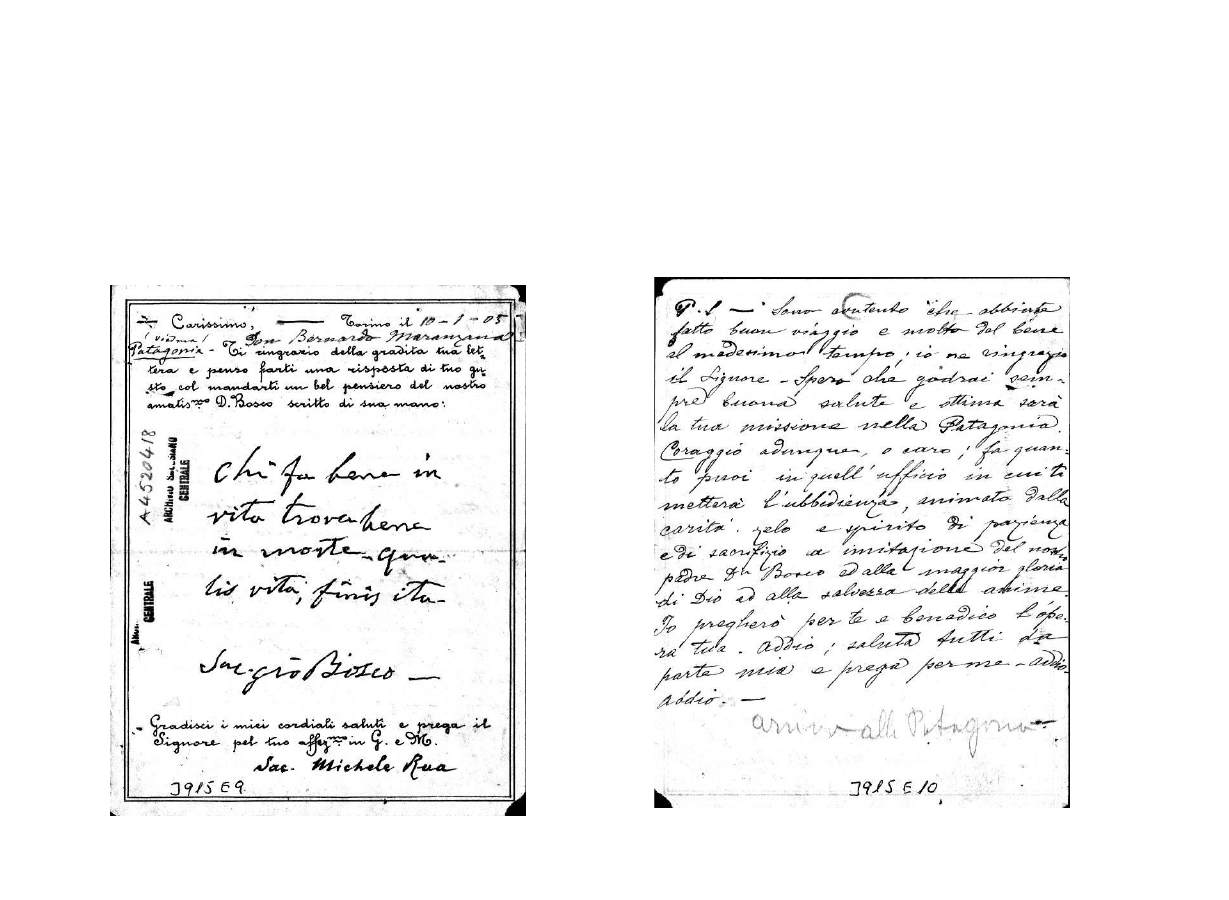 Carissimo, — Torino il 10-1-05
(Viedma) Don Bernardo Maranzana
Patagonia - Ti ringrazio della gradita tua let-
tera e penso farti una risposta di tuo gu-
sto col mandarti un bel pensiero del nostro
amatis.mo D. Bosco scritto di sua mano:
A 4520418
ARCHIVIO SALESIANO
CENTRALE
Chi fa bene in
vita trova bene
in morte - qua-
lis vita, finis ita -
CENTRALE
Sac. Gio Bosco —
Gradisci i miei cordiali saluti e prega il
Signore pel tuo affez.mo in G. e M.
Sac. Michele Rua
3915 E 9
P.S — Sono contento che abbiate
fatto buon viaggio e molto del bene
al medesimo tempo; io ne ringrazio
il Signore - Spero che godrai sem-
pre buona salute e ottima sarà
la tua missione nella Patagonia.
Coraggio adunque, o caro; fa quan-
to puoi in quell'ufficio in cui ti
metterà l'ubbidienza, animato dalla
carità, zelo e spirito di pazienza
e di sacrifizio a imitazione del nostro
padre Dn Bosco ed alla maggior gloria
di Dio ed alla salvezza delle anime.
Io pregherò per te e benedico l'ope-
ra tua. Addio; saluta tutti da
parte mia e prega per me - addio-
addio. —
arrivo alla Patagonia
3915 E 10